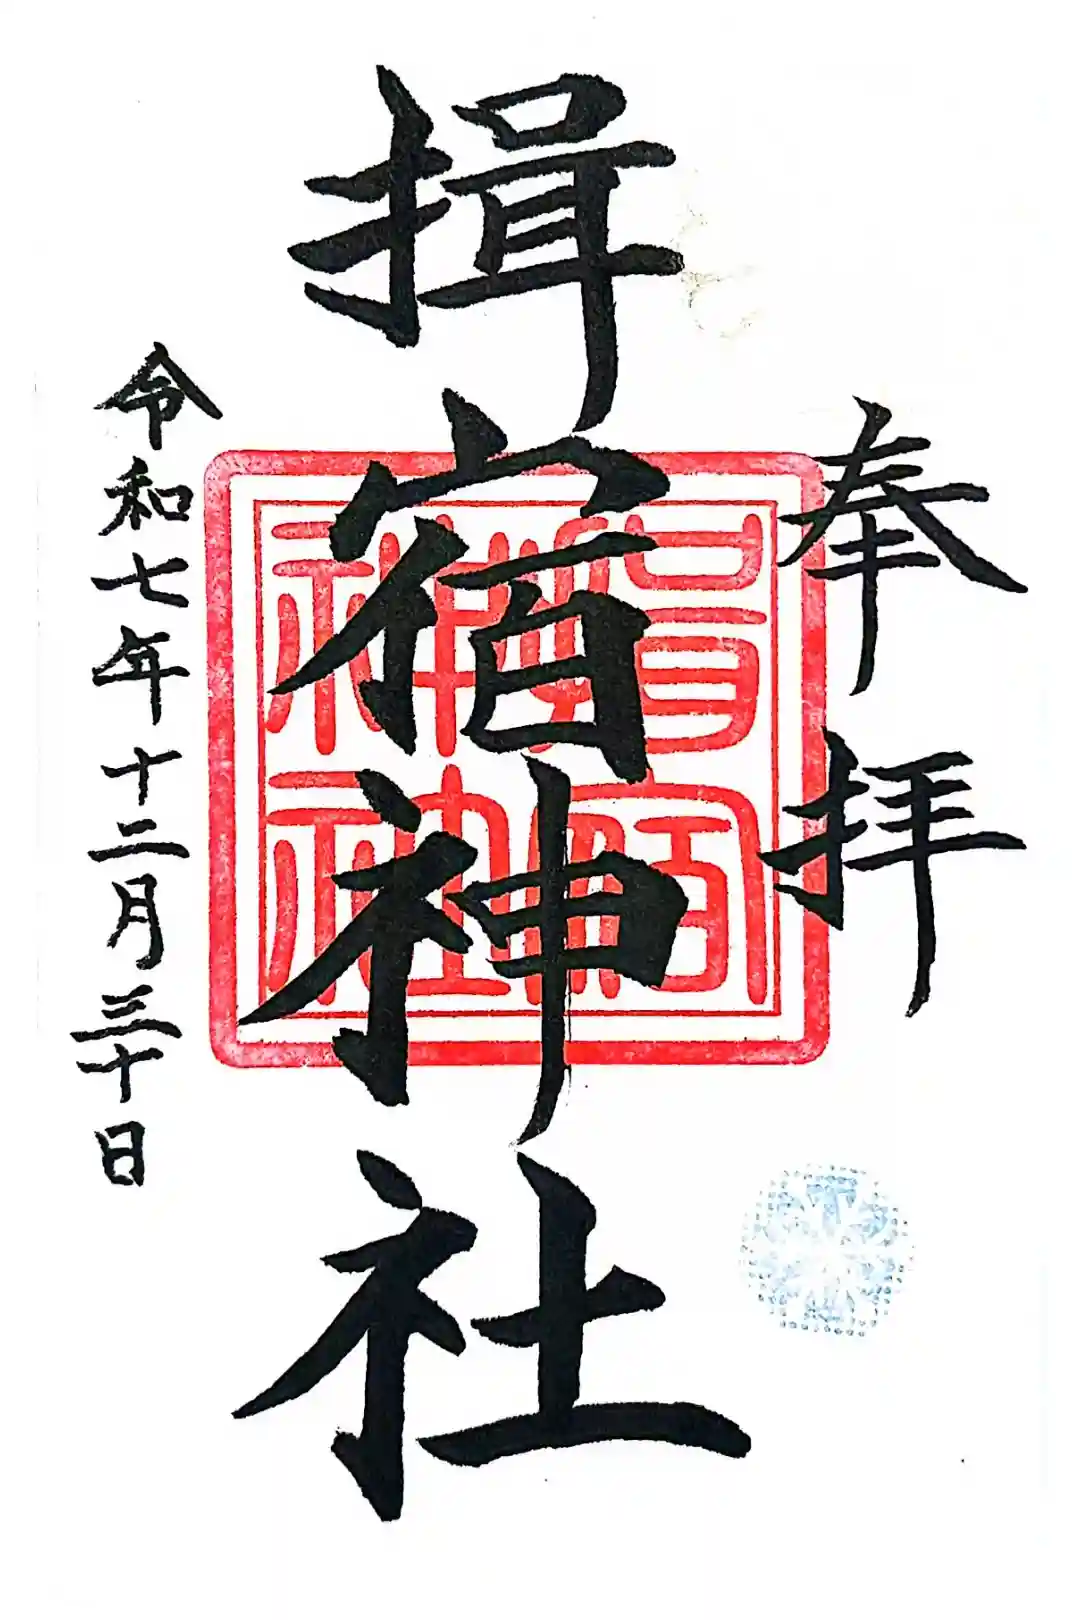 奉拝
揖宿神社
揖宿神社
令和七年十二月三十日